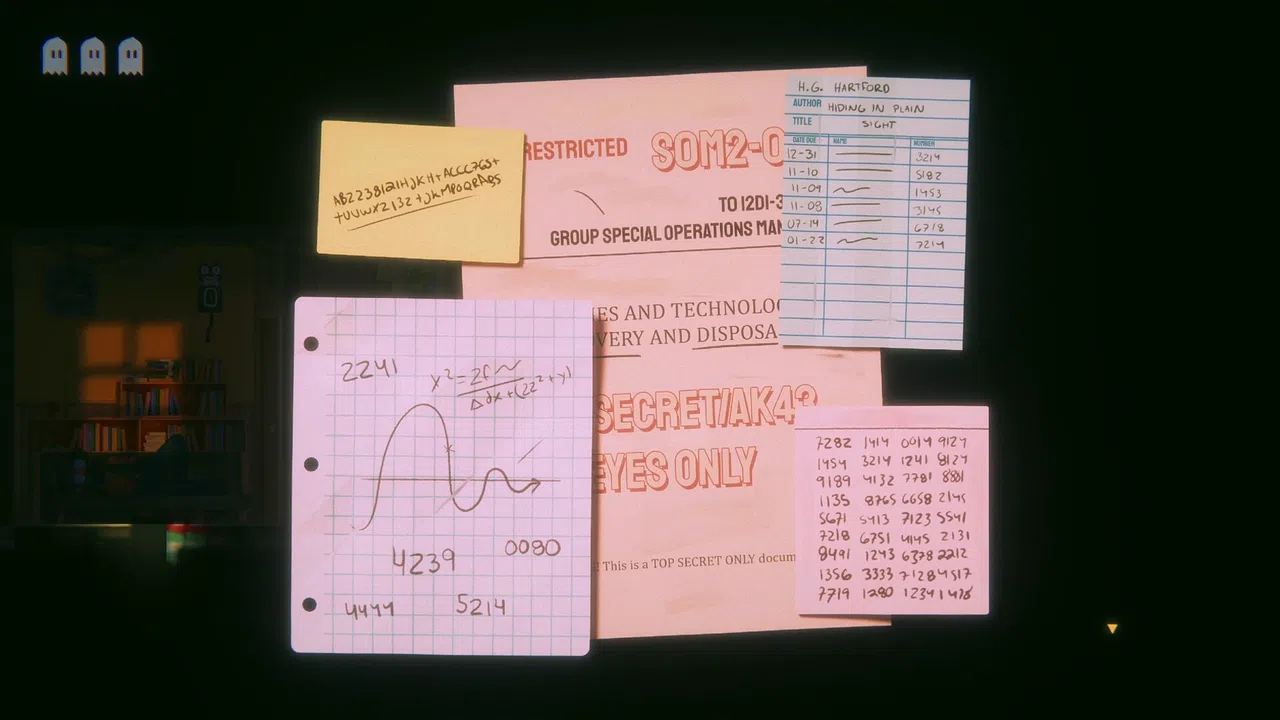 RESTRICTED
SOM2-0
TO 12D1-3
GROUP SPECIAL OPERATIONS MAN
IES AND TECHNOLO
VERY AND DISPOSA
SECRET/AK43
EYES ONLY
This is a TOP SECRET ONLY docum
H.G. HARTFORD
AUTHOR HIDING IN PLAIN
TITLE SIGHT
DATE DUE NAME NUMBER
12-31 3214
11-10 5182
11-09 1453
11-08 3145
07-14 6718
01-22 7214
2241
4239
0080
4444
5214
7282 1414 0014 9127
1454 3214 1241 8127
9189 4132 7781 8881
1135 8765 6658 2145
5671 5413 7123 5541
7218 6751 4145 2131
8491 1243 6378 2212
1356 3333 7128 4517
7719 1280 1234 1478